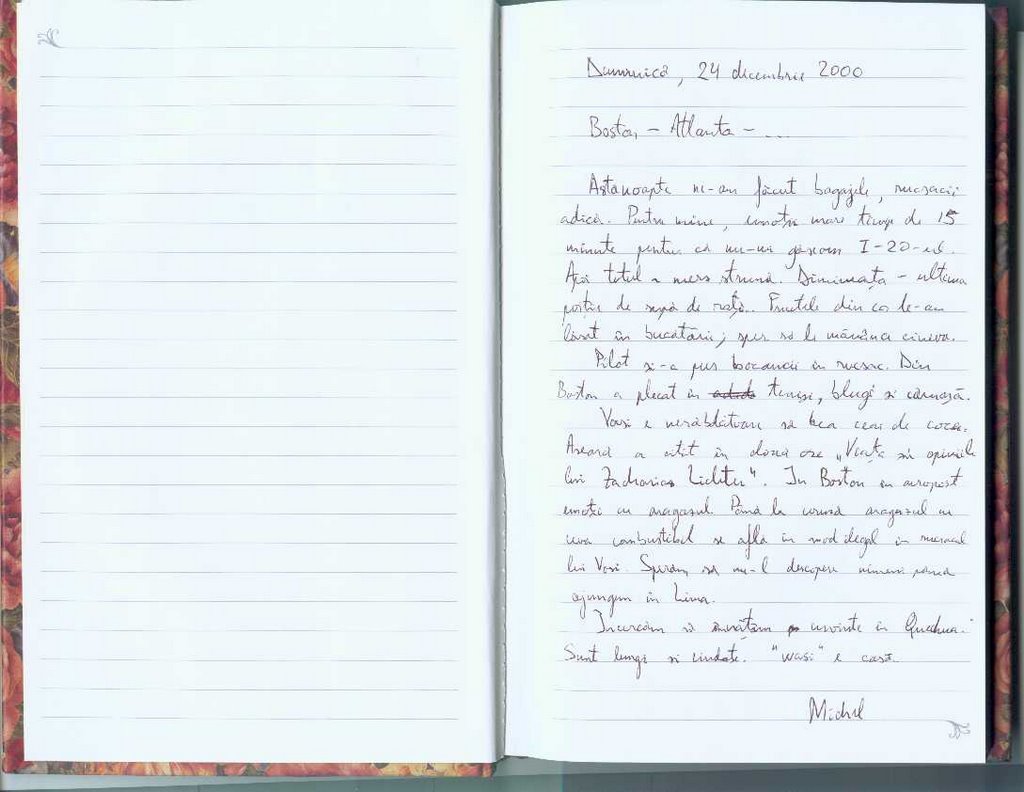 Duminică, 24 decembrie 2000
Boston - Atlanta - ...
Astanoapte ne-am făcut bagajele, rucsacii
adică. Pentru mine, emoții mare timp de 15
minute pentru că nu-mi găseam I-20-ul.
Apoi totul a mers strună. Dimineața - ultima
porție de supă de rață.. Fructele din coș le-am
lăsat în bucătărie; sper să le mănânce cineva.
Pilot și-a pus bocancii în rucsac. Din
Boston a plecat în teniși, blugi și cămașă.
Vasi e nerăbdătoare să bea ceai de coca.
Aseară a citit în două ore „Viața și opiniile
lui Zacharias Lichter". In Boston în aeroport
emoții cu aragazul. Până la urmă aragazul cu
combustibil se află în mod ilegal în rucsacul
lui Vasi. Sperăm să nu-l descopere nimeni până
ajungem în Lima.
Încercăm să învățăm cuvinte în Quechua.
Sunt lungi și ciudate. "wasi" e casă.